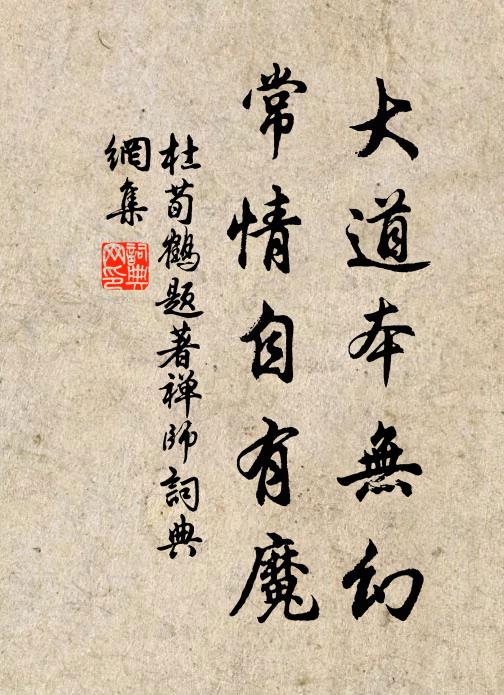 大道本無幻
常情自有魔
杜荀鶴題著禅師詞典
網集
詞典
网印